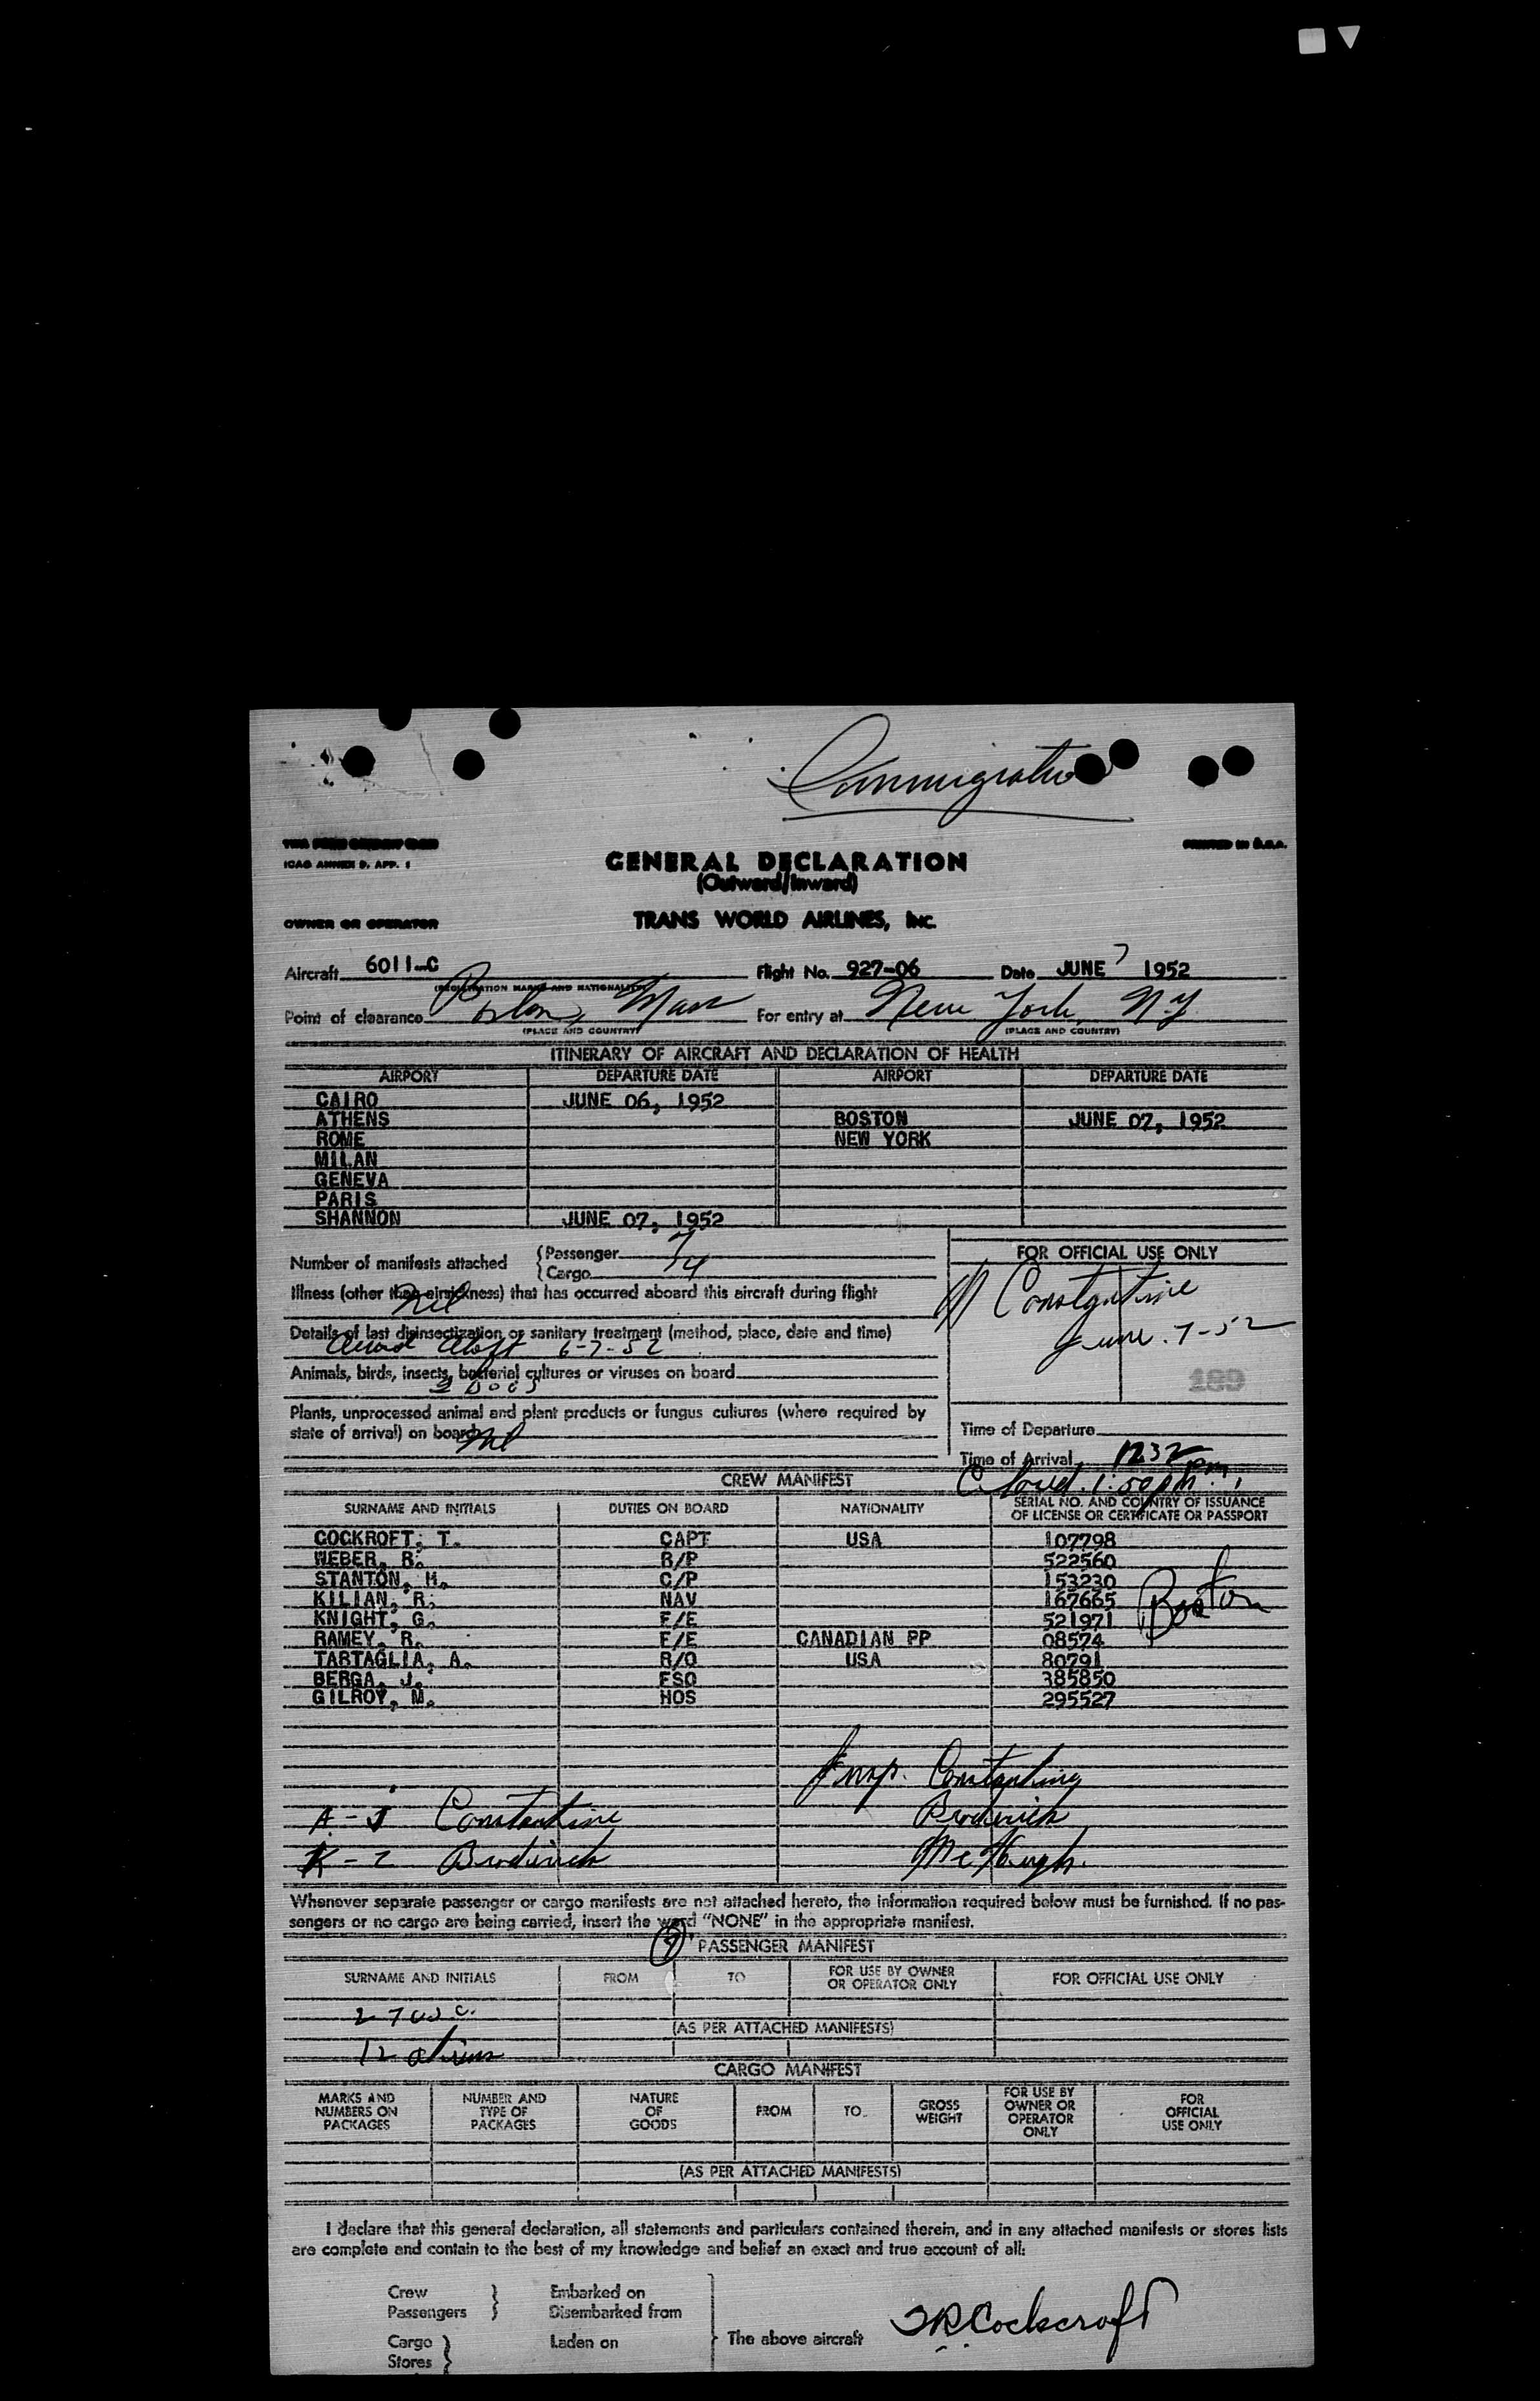 Immigration
ICAO ANNEX 9, APP. 1
PRINTED IN U.S.A.
GENERAL DECLARATION
(Outward/Inward)
OWNER OR OPERATOR TRANS WORLD AIRLINES, Inc.
Aircraft 6011-C Flight No. 927-06 Date JUNE 7 1952
(REGISTRATION MARKS AND NATIONALITY)
Point of clearance Boston, Mass For entry at New York, N.Y
(PLACE AND COUNTRY) (PLACE AND COUNTRY)
ITINERARY OF AIRCRAFT AND DECLARATION OF HEALTH
AIRPORT DEPARTURE DATE AIRPORT DEPARTURE DATE
CAIRO JUNE 06, 1952
ATHENS BOSTON JUNE 07, 1952
ROME NEW YORK
MILAN
GENEVA
PARIS
SHANNON JUNE 07, 1952
Number of manifests attached { Passenger 7
{ Cargo 14
Illness (other than airsickness) that has occurred aboard this aircraft during flight
Nil
Details of last disinsectization or sanitary treatment (method, place, date and time)
Aloft 6-7-52
Animals, birds, insects, bacterial cultures or viruses on board
2 DOGS
Plants, unprocessed animal and plant products or fungus cultures (where required by
state of arrival) on board
Nil
FOR OFFICIAL USE ONLY
Constantine
June. 7-52
189
Time of Departure
Time of Arrival 1232 pm
Cleared. 1:50 pm.
CREW MANIFEST
SURNAME AND INITIALS DUTIES ON BOARD NATIONALITY SERIAL NO. AND COUNTRY OF ISSUANCE
OF LICENSE OR CERTIFICATE OR PASSPORT
COCKROFT, T. CAPT USA 107798
WEBER, R. R/P 522560
STANTON, H. C/P 153230
KILIAN, R. NAV 167665
KNIGHT, G. F/E 521971
RAMEY, R. F/E CANADIAN PP 08574
TARTAGLIA, A. R/O USA 80791
BERGA, J. FSO 385850
GILROY, M. HOS 295527
Boston
Insp. Constantine
A - J Constantine Broderick
K - Z Broderick McHugh.
Whenever separate passenger or cargo manifests are not attached hereto, the information required below must be furnished. If no pas-
sengers or no cargo are being carried, insert the word "NONE" in the appropriate manifest.
PASSENGER MANIFEST
SURNAME AND INITIALS FROM TO FOR USE BY OWNER
OR OPERATOR ONLY FOR OFFICIAL USE ONLY
(AS PER ATTACHED MANIFESTS)
12 aliens
CARGO MANIFEST
MARKS AND
NUMBERS ON
PACKAGES NUMBER AND
TYPE OF
PACKAGES NATURE
OF
GOODS FROM TO GROSS
WEIGHT FOR USE BY
OWNER OR
OPERATOR
ONLY FOR
OFFICIAL
USE ONLY
(AS PER ATTACHED MANIFESTS)
I declare that this general declaration, all statements and particulars contained therein, and in any attached manifests or stores lists
are complete and contain to the best of my knowledge and belief an exact and true account of all:
Crew } Embarked on
Passengers } Disembarked from
Cargo } Laden on } The above aircraft TR Cockcroft
Stores }